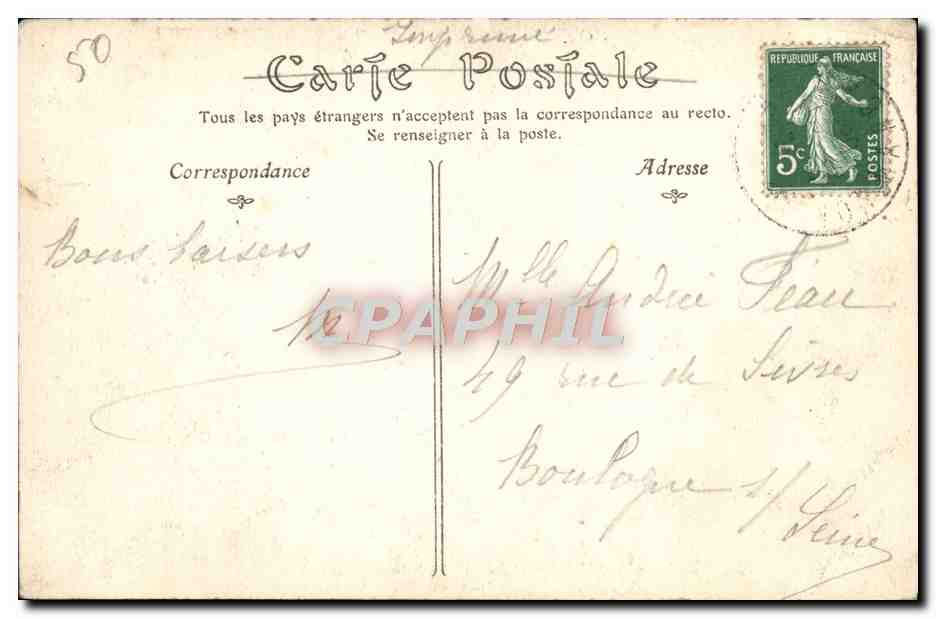 50
Imprimé
Carte Postale
Tous les pays étrangers n'acceptent pas la correspondance au recto.
Se renseigner à la poste.
REPUBLIQUE FRANÇAISE
5c
POSTES
Correspondance
Adresse
Bons baisers
CPAPHIL
Mlle Andrée Féau
49 rue de Sèvres
Boulogne s/
Seine